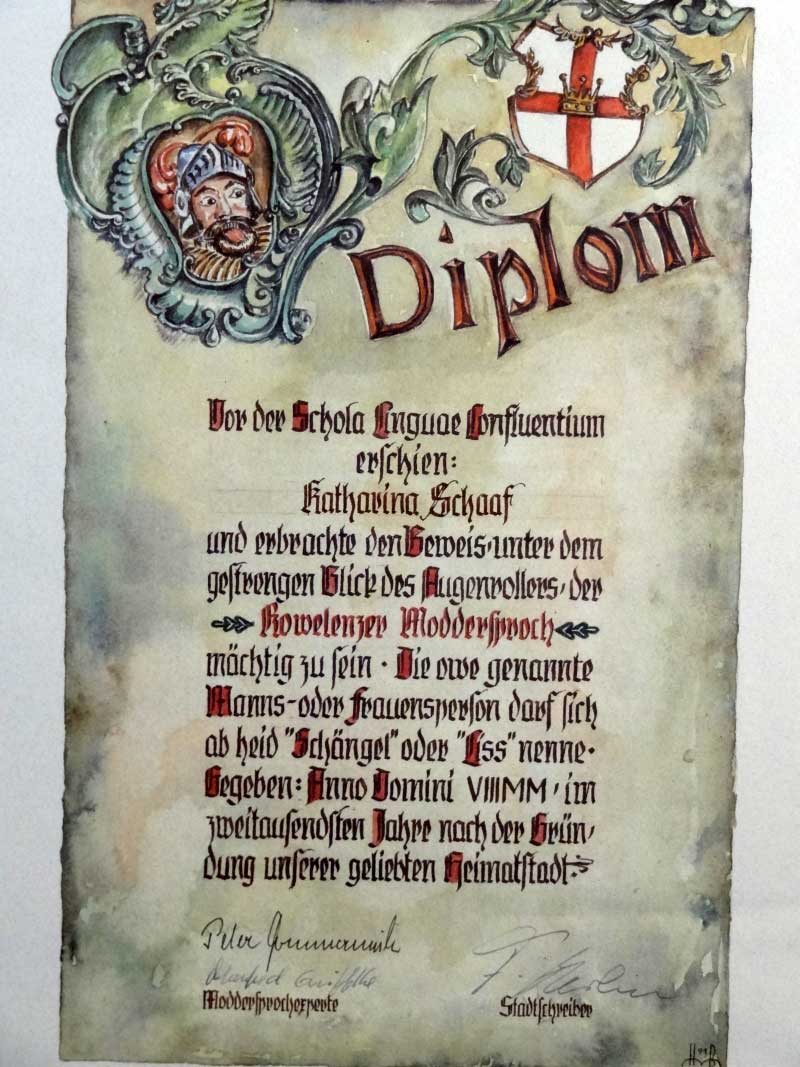 Diplom
Vor der Schola Linguae Confluentium
erschien:
Katharina Schaaf
und erbrachte den Beweis, unter dem
gestrengen Blick des Augenrollers, der
Kowelenzer Moddersproch
mächtig zu sein · Die owe genannte
Manns- oder Frauensperson darf sich
ab heid "Schängel" oder "Liss" nenne·
Gegeben: Anno Domini VIIIMM, im
zweitausendsten Jahre nach der Grün-
dung unserer geliebten Heimatstadt·
Peter
Manfred
Moddersprochexperte
Stadtschreiber